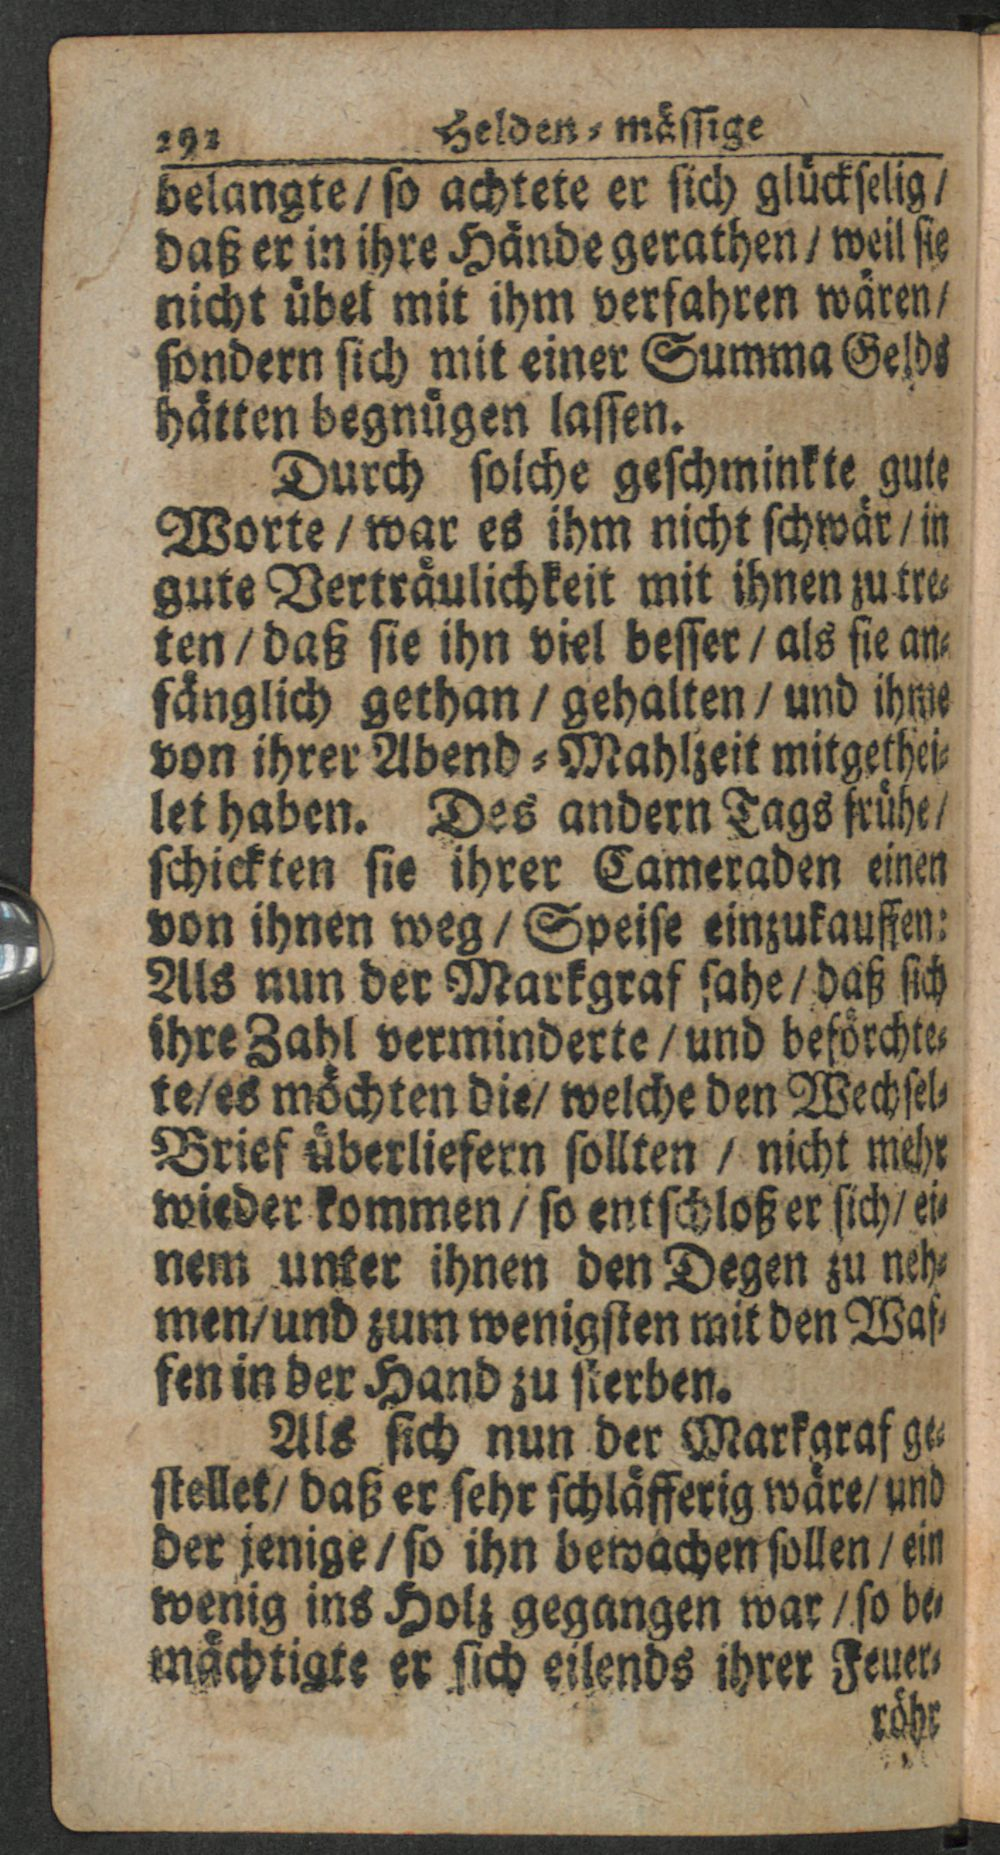 292 Helden-mässige
belangte/ so achtete er sich glückselig/
daß er in ihre Hände gerathen/ weil sie
nicht übel mit ihm verfahren wären/
sondern sich mit einer Summa Gelds
hätten begnügen lassen.
Durch solche geschminkte gute
Worte/ war es ihm nicht schwär/ in
gute Verträulichkeit mit ihnen zu tre-
ten/ daß sie ihn viel besser/ als sie an-
fänglich gethan/ gehalten/ und ihme
von ihrer Abend-Mahlzeit mitgethei-
let haben. Des andern Tags frühe/
schickten sie ihrer Cameraden einen
von ihnen weg/ Speise einzukauffen:
Als nun der Markgraf sahe/ daß sich
ihre Zahl verminderte/ und beförchte-
te/ es möchten die/ welche den Wechsel-
Brief überliefern sollten/ nicht mehr
wieder kommen/ so entschloß er sich/ ei-
nem unter ihnen den Degen zu neh-
men/ und zum wenigsten mit den Waf-
fen in der Hand zu sterben.
Als sich nun der Markgraf ge-
stellet/ daß er sehr schläfferig wäre/ und
der jenige/ so ihn bewachen sollen/ ein
wenig ins Holz gegangen war/ so be-
mächtigte er sich eilends ihrer Feuer-
röhr